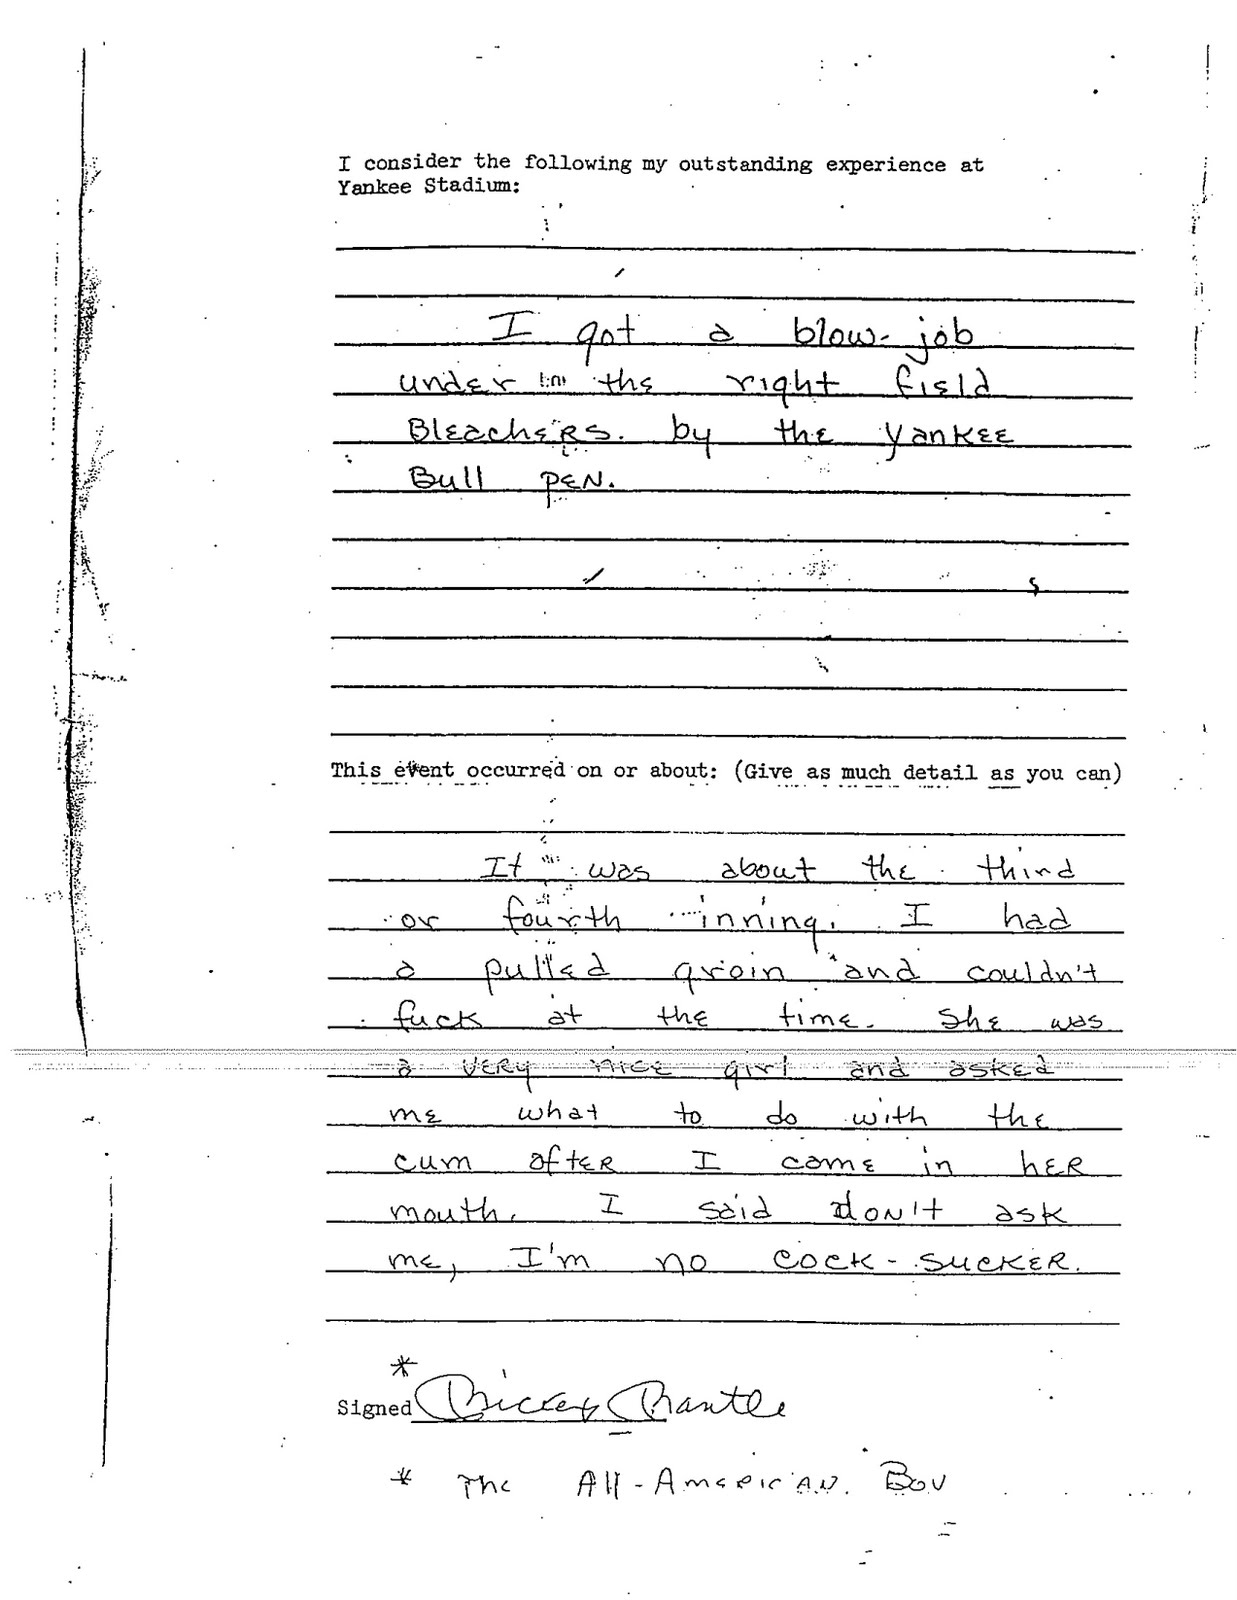 I consider the following my outstanding experience at
Yankee Stadium:
I got a blow-job
under the right field
Bleachers. by the Yankee
Bull pen.
This event occurred on or about: (Give as much detail as you can)
It was about the third
or fourth inning. I had
a pulled groin and couldn't
fuck at the time. She was
a very nice girl and asked
me what to do with the
cum after I came in her
mouth. I said don't ask
me, I'm no cock-sucker.
*
Signed Mickey Mantle
* The All-American Boy